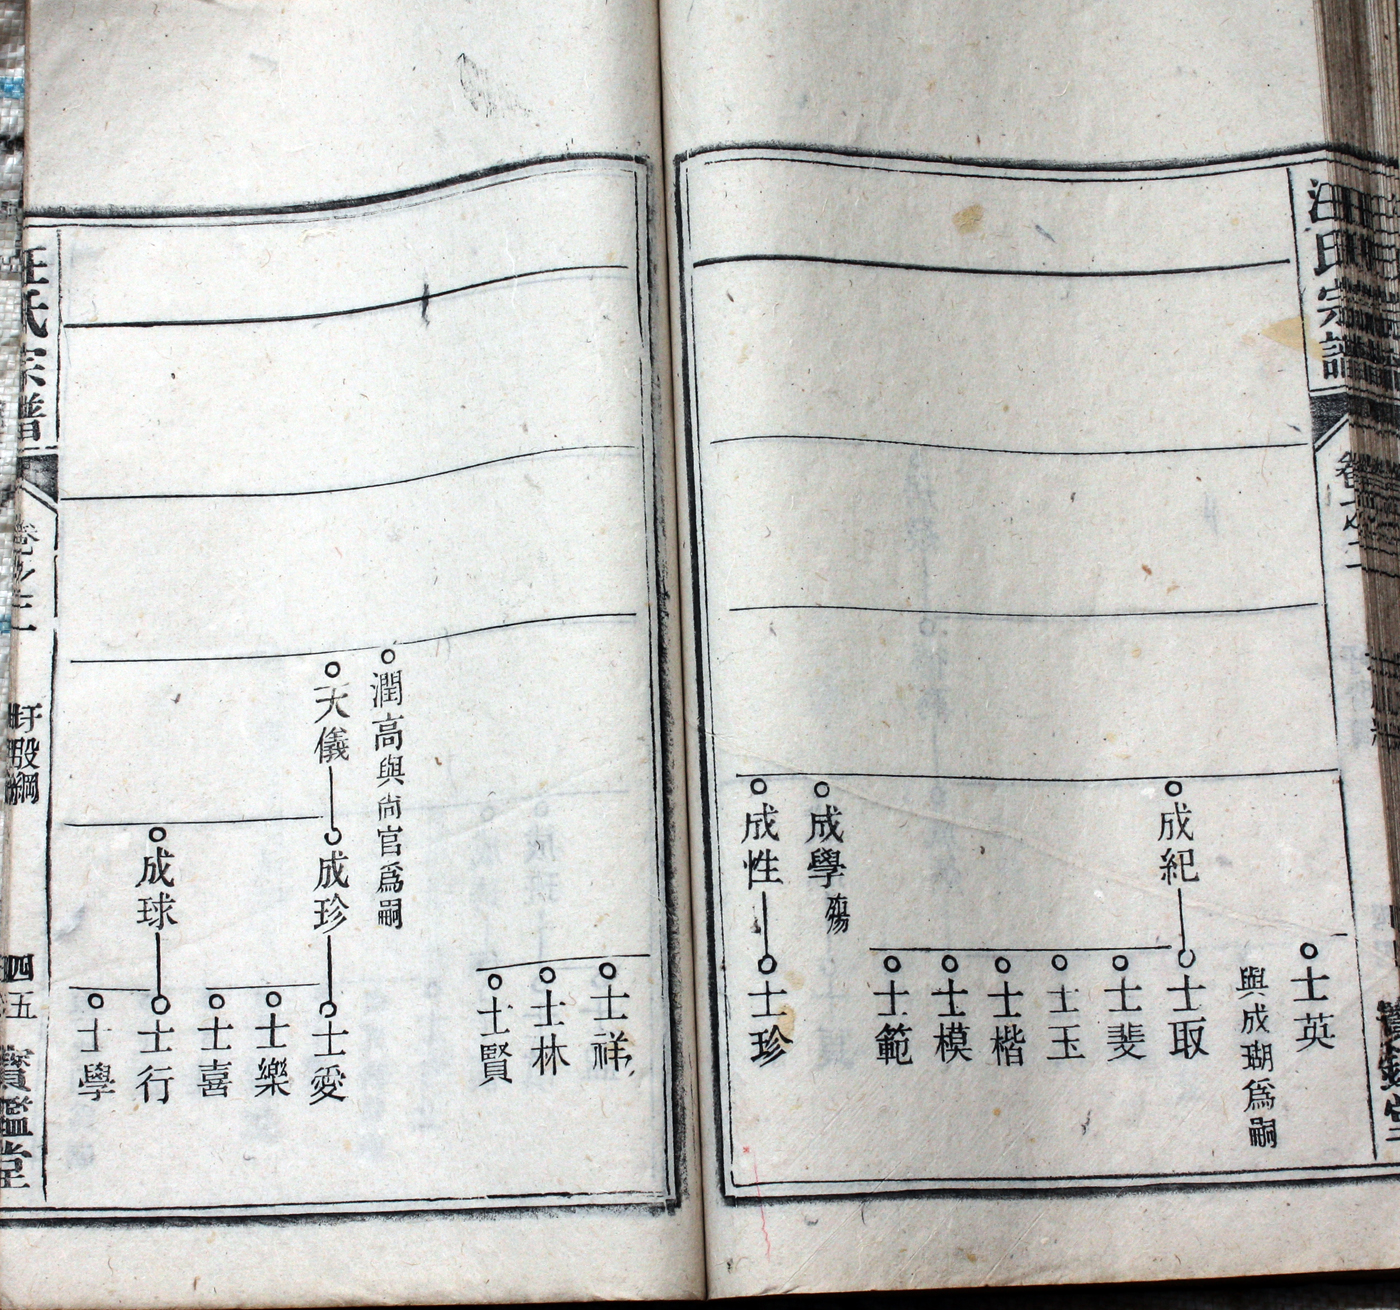 汪氏宗譜
士英
與成瑚爲嗣
成紀
士取
士斐
士玉
士楷
士模
士範
成學殤
成性
士珍
士祥
士林
士賢
潤高與尚官爲嗣
天儀
成珍
士愛
士樂
士喜
成球
士行
士學
汪氏宗譜
四五
寶鑑堂